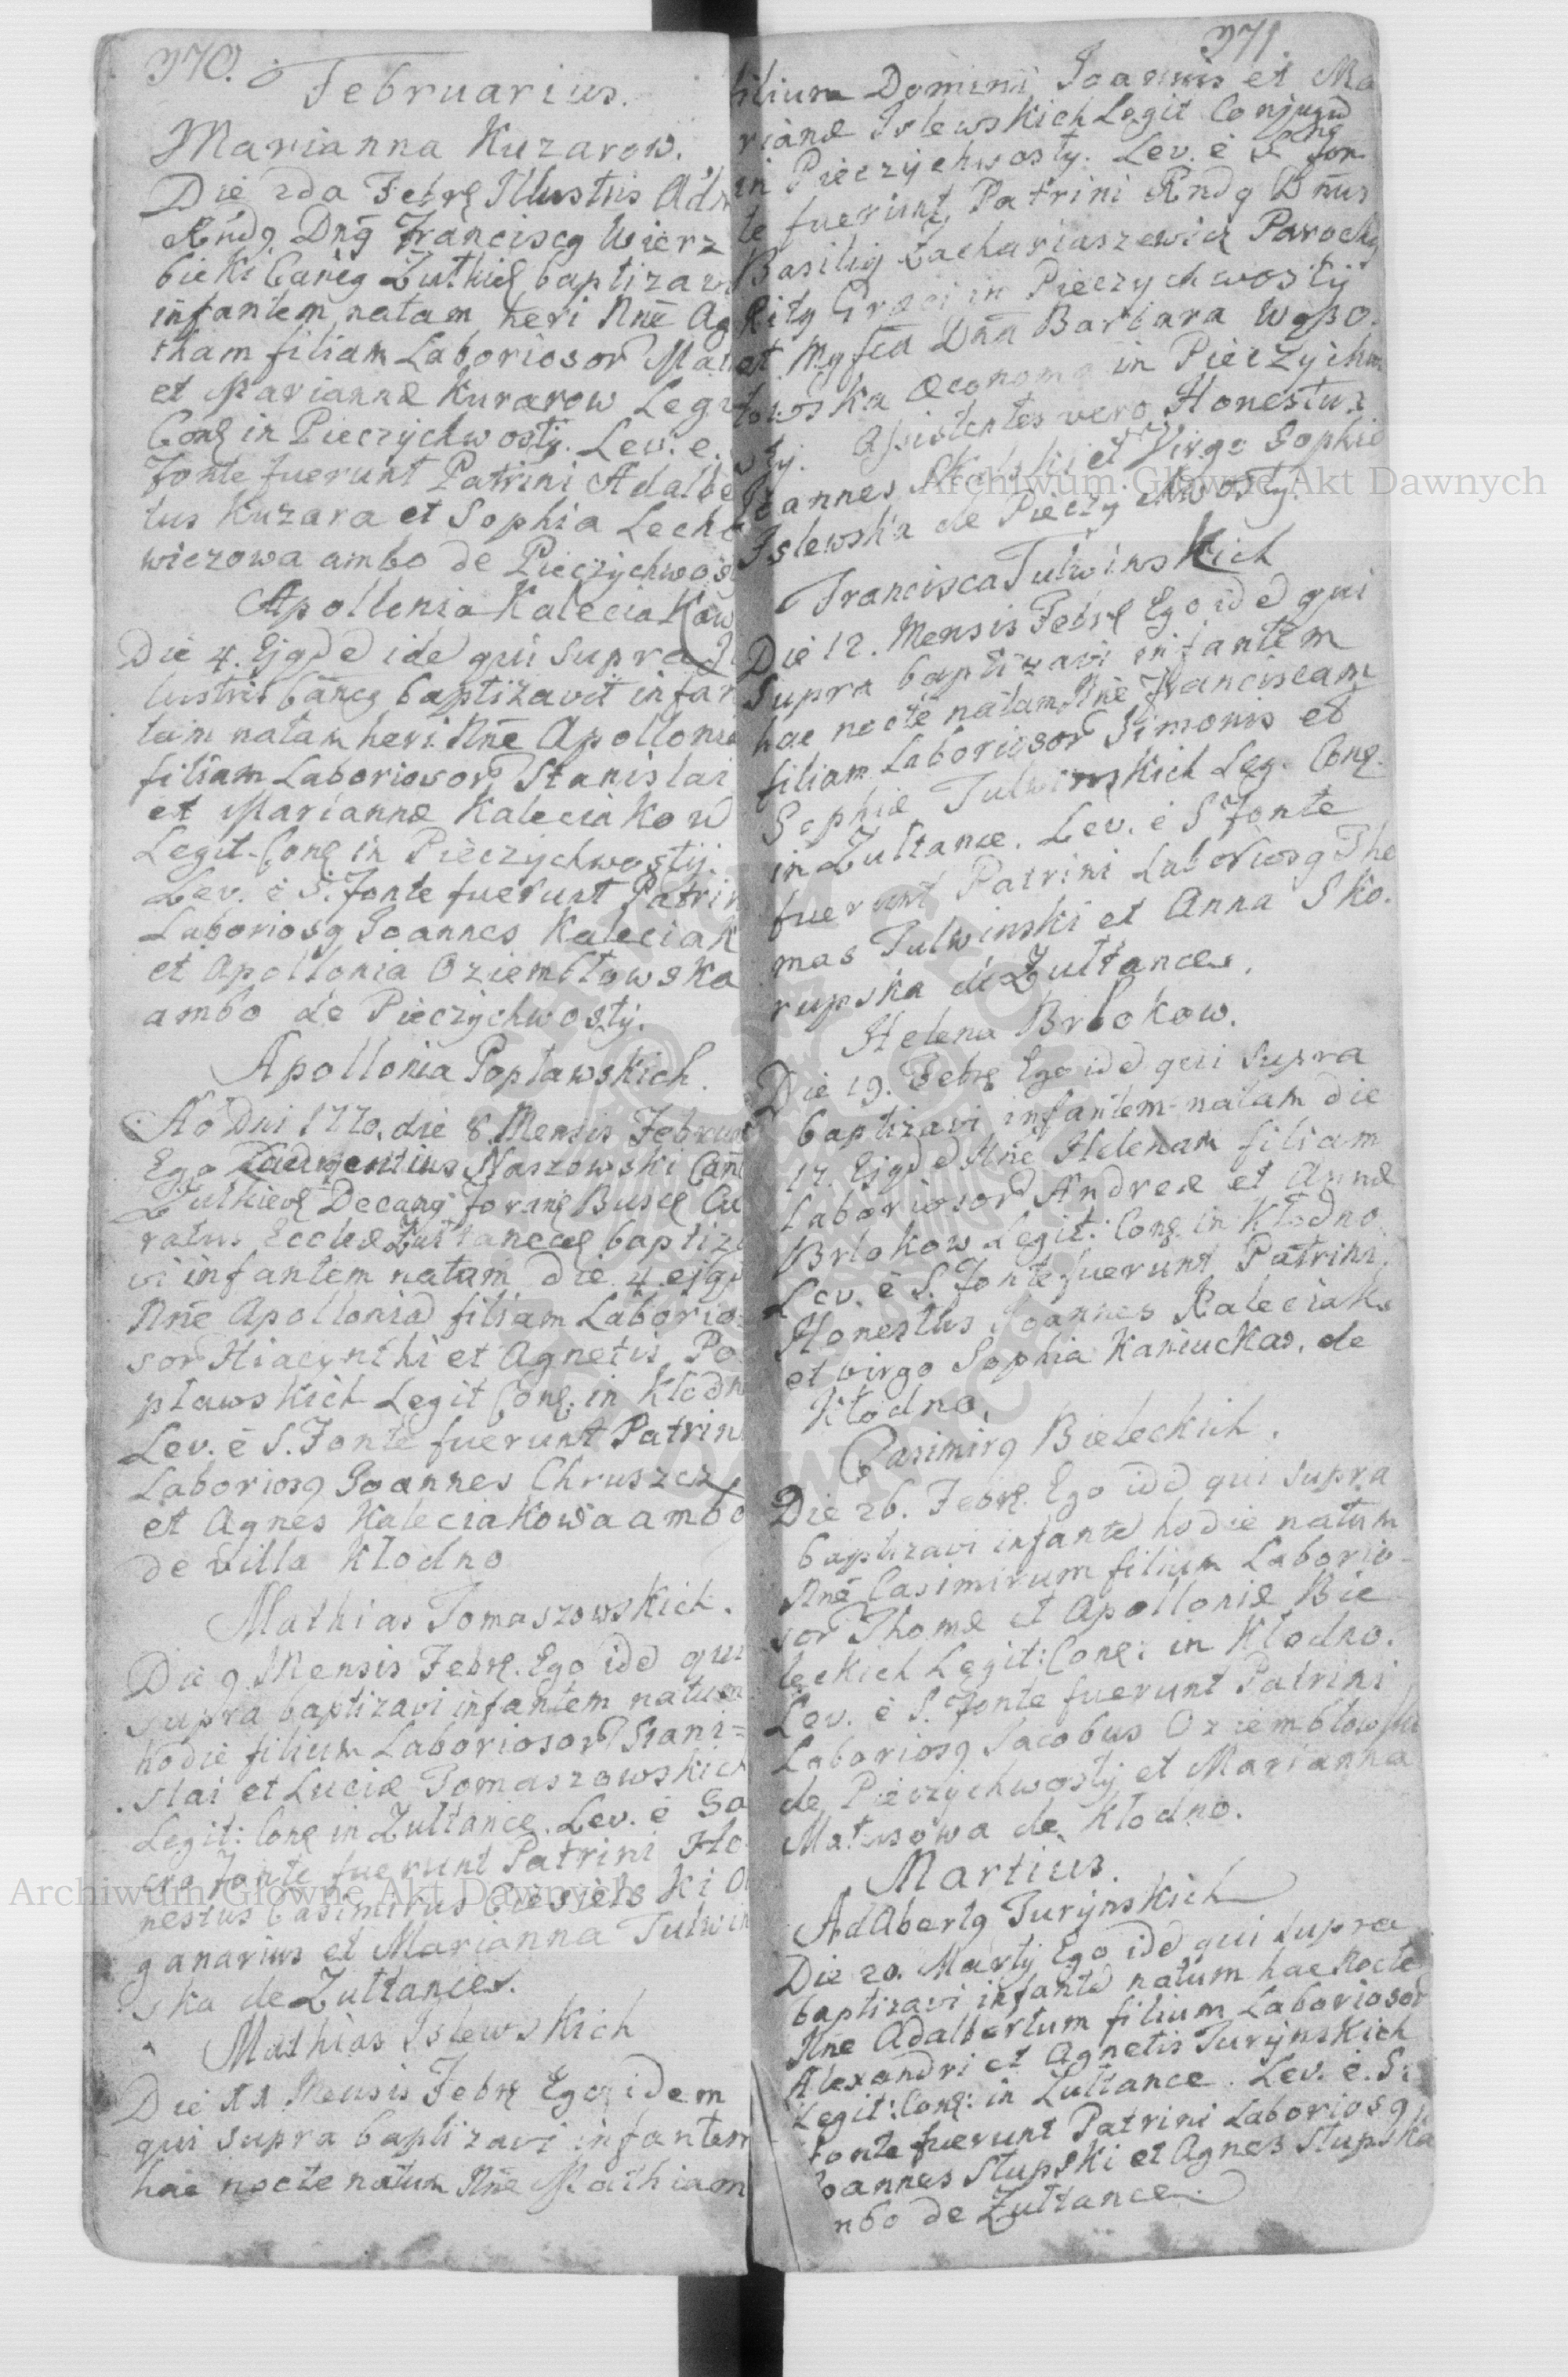 370.
Februarius.
Marianna Kuzarow.
Die 2da Febrę Illustris Adm
Rńdg Dńg Franciscg Wierz
bicki Cańcg Żułkię baptizavi
infantem natam heri Nnē Ag
tham filiam Laboriosor Mat
et Mariannæ Kuzarow Legit
Conę in Pieczychwosty. Lev. e.
Fonte fuerunt Patrini Adalbe
tus Kuzara et Sophia Lecho
wiczowa ambo de Pieczychwos
Apollonia Kaleciakow
Die 4. Ejgde idē qui supra Il
lustris Cańcg baptizavit infan
tem natam heri Nnē Apollonia
filiam Laboriosor Stanislai
et Mariannæ Kaleciakow
Legit. Conę in Pieczychwostij.
Lev. è S. Fonte fuerunt Patrin
Laboriosg Joannes Kaleciak
et Apollonia Oziembłowska
ambo de Pieczychwosty.
Apollonia Popławskich.
Aō Dni 1770. die 8 Mensis Februa
Ego Naszowski Cań
Żułkievę Decang Foranę Buscę Cu
ratus Eccleæ Żułtanecę baptiza
vi infantem natam die 4 ejgd
Nnē Apolloniā filiam Laborio
sor Hiacynthi et Agnetis Po
pławskich Legit Conę. in Kłodn
Lev. è S. Fonte fuerunt Patrin
Laboriosg Joannes Chruszcz
et Agnes Kaleciakowa ambo
de villa Kłodno
Mathias Tomaszowskich.
Die 9 Mensis Febrę. Ego idē qui
supra baptizavi infantem natum
hodie filium Laboriosor Stani=
slai et Luciæ Tomaszowskich
Legit: Conę in Żułtańce. Lev. è Sa
cro Fonte fuerunt Patrini Ho
nestus Casimirus Ciesielski O
ganarius et Marianna Tulwin
ska de Żułtances.
Mathias Islewskich
Die 11 Mensis Febrę Ego idem
qui supra baptizavi infantem
hac nocte natum Nnē Mathiam
371.
filium Domini Joannis et Ma
riannæ Islewskich Legit Conjugū
in Pieczychwosty. Lev. è S. Fon
te fuerunt Patrini Rndg Dnus
Basilig Zachariaszewicz Parochg
Ritg Græci in Pieczychwosty
et Mgfca Dna Barbara Wyso.
towska œconoma in Pieczychwo
sty. Assistentes vero Honestus
Joannes Skalski et Virgo Sophia
Islewska de Pieczychwosty.
Francisca Tulwinskich
Die 12. Mensis Febrę Ego idē qui
supra baptizavi infantem
hac nocte natam Nnē Franciscam
filiam Laboriosor Simonis et
Sophiæ Tulwinskich Leg. Conę.
in Żułtance. Lev. è S Fonte
fuerunt Patrini Laboriosg Tho
mas Tulwinski et Anna Sko.
rupska de Żułtances.
Helena Brbokow.
Die 19. Febrę Ego idē qui supra
baptizavi infantem natam die
17. Ejgdē Nnē Helenam filiam
Laboriosor Andreæ et Annæ
Brbokow Legit: Conę. in Kłodno.
Lev. è S. Fonte fuerunt Patrini
Honestus Joannes Kaleciak
et virgo Sophia Kaniucka. de
Kłodno.
Casimirg Bieleckich.
Die 26. Febrę. Ego idē qui supra
baptizavi infantē hodie natum
Nnē Casimirum filium Laborio
sor Thomæ et Apolloniæ Bie
leckich Legit: Conę: in Kłodno.
Lev. è S. Fonte fuerunt Patrini
Laboriosg Jacobus Oziembłowski
de Pieczychwosty et Marianna
Matusowa de Kłodno.
Martius.
Adalbertg Turynskich
Die 20. Martij Ego idē qui supra
baptizavi infantē natum hac nocte
Nnē Adalbertum filium Laboriosor
Alexandri et Agnetis Turynskich
Legit: Conę: in Żułtance. Lev. è. S:
Fonte fuerunt Patrini Laboriosg
Joannes Słupski et Agnes Słupska
mbo de Żułtance.
Archiwum Główne Akt Dawnych
Archiwum Główne Akt Dawnych